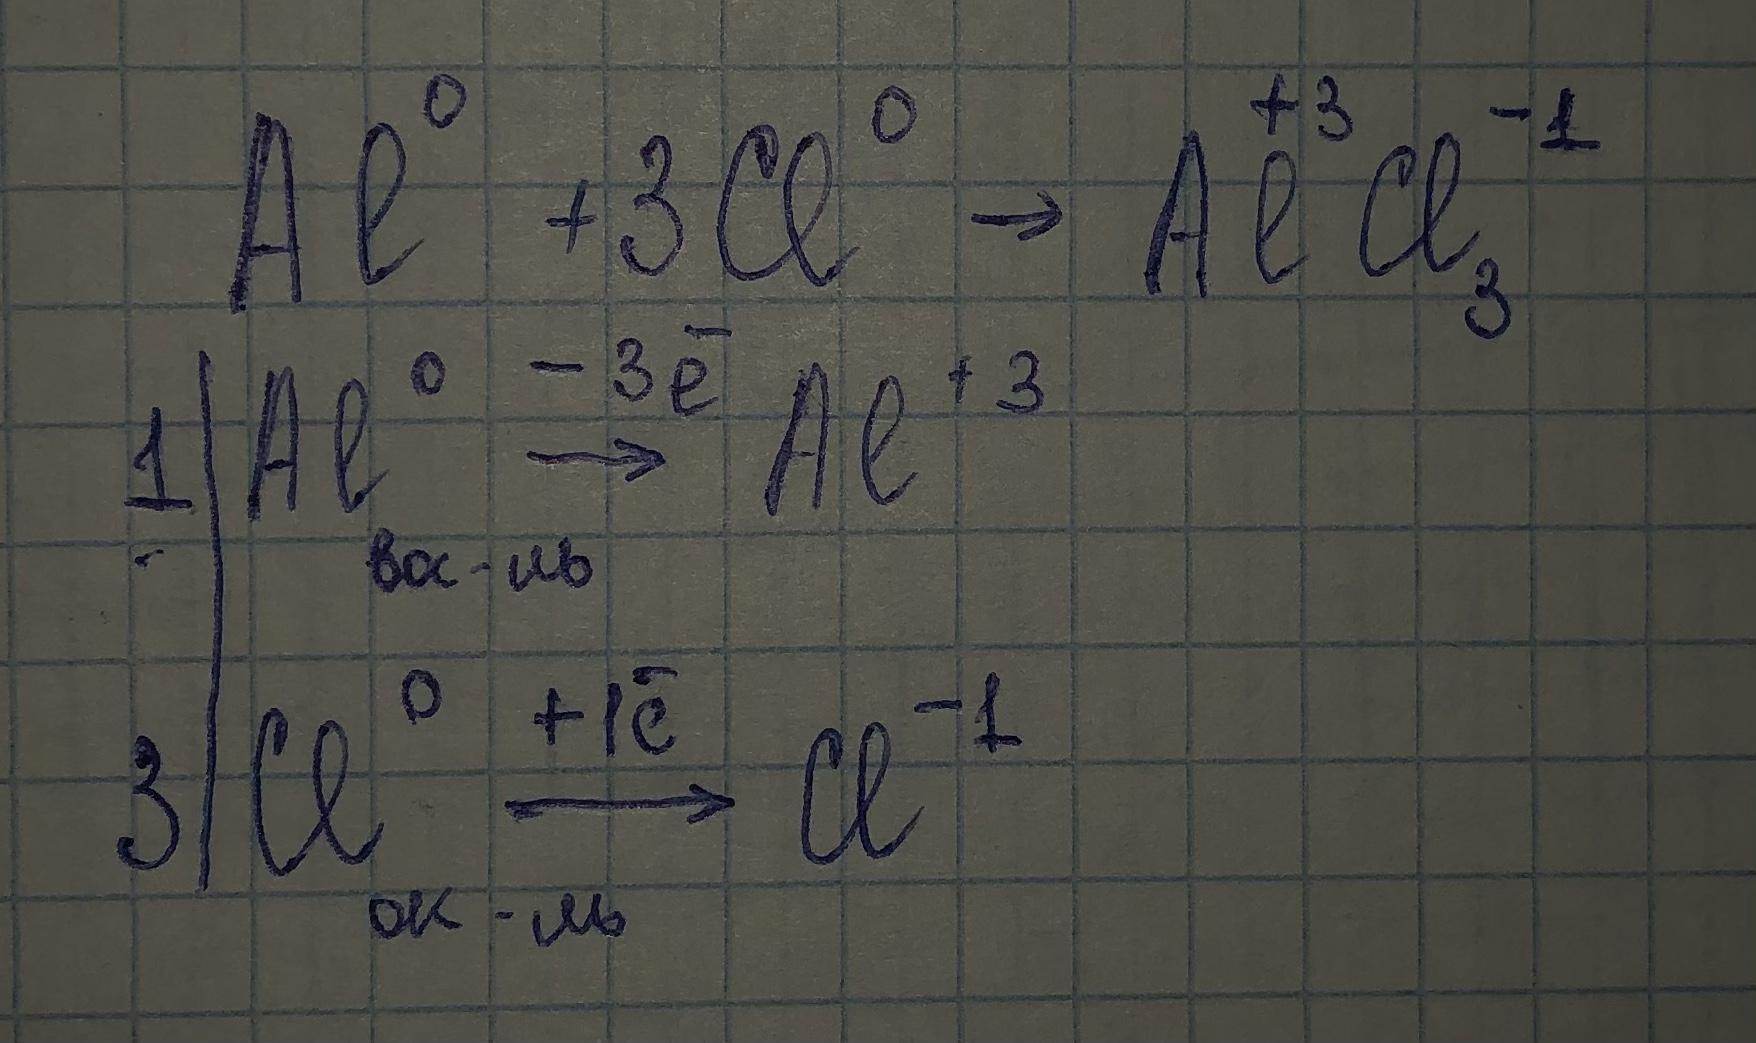 Al⁰ + 3Cl⁰ → Al⁺³Cl₃⁻¹
1 | Al⁰ −3ē → Al⁺³
вос-ль
3 | Cl⁰ +1ē → Cl⁻¹
ок-ль